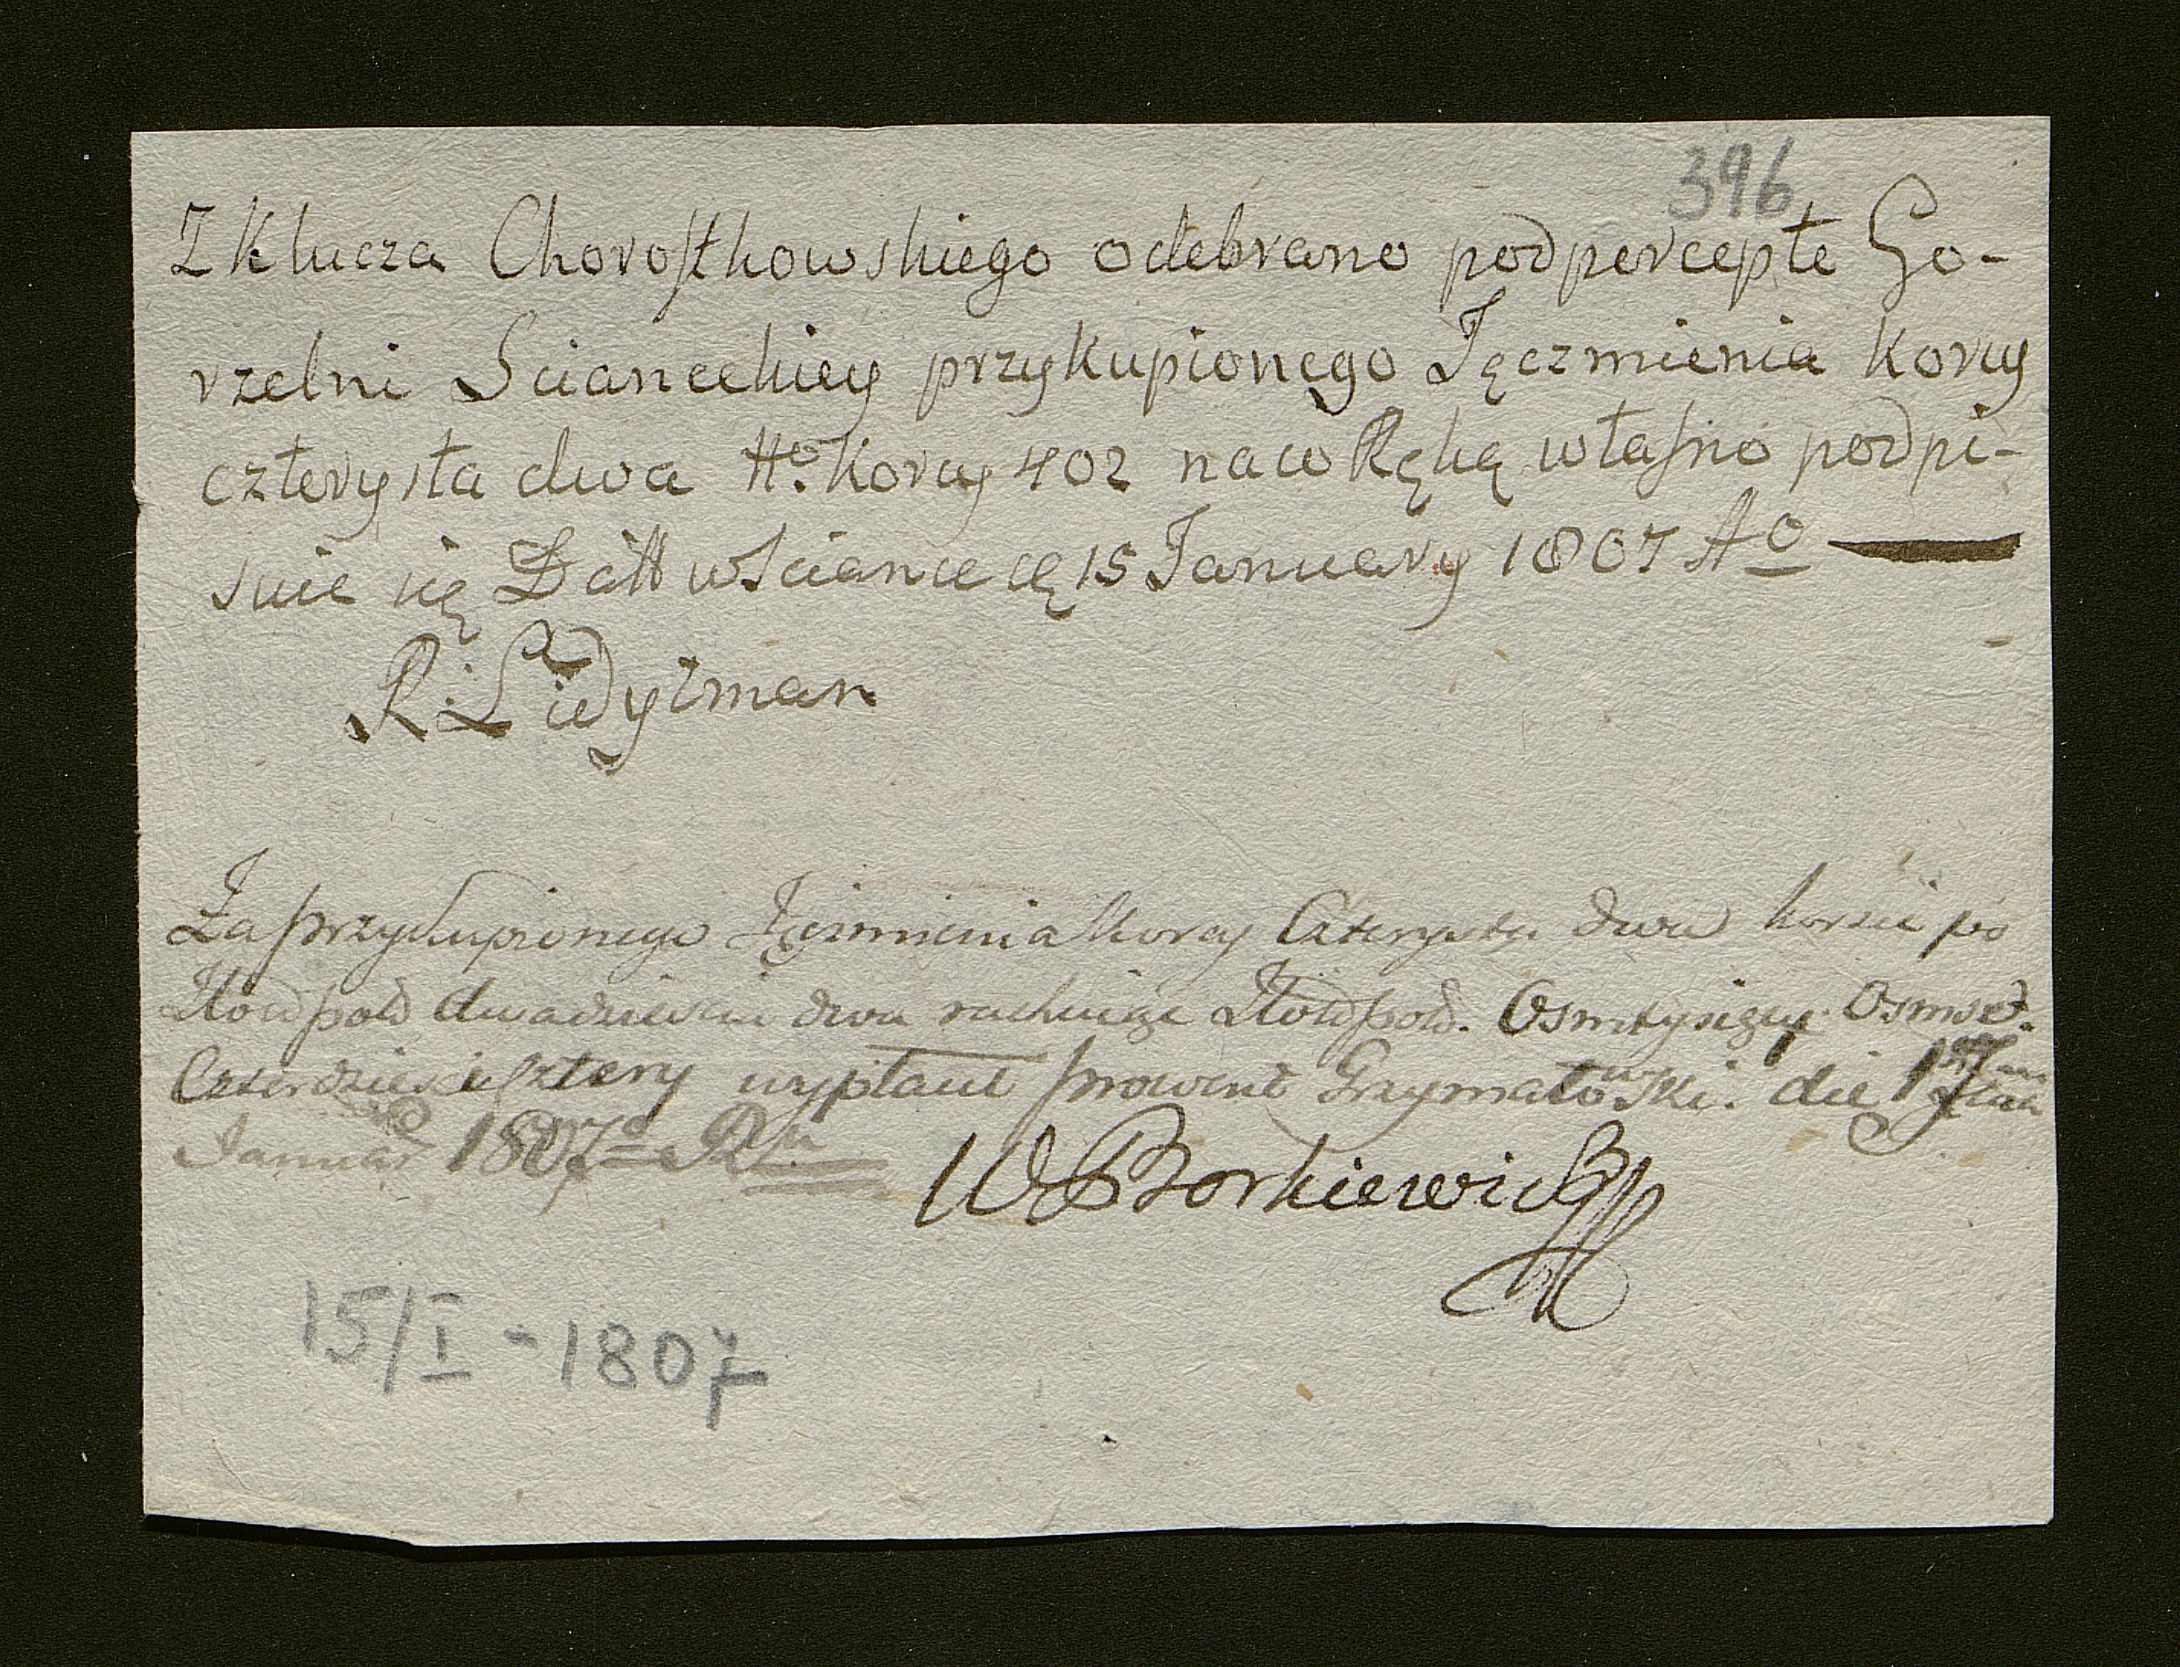 396
Z Klucza Chorostkowskiego odebrano pod percepte Go-
rzelni Scianeckiey przykupionego Jęczmienia Korcy
czterysta dwa No. Korcy 402 na co Ręką własno podpi-
suie się Datt w Sciance cę 15 January 1807 Ao
R: Lidyzman
Za przykupionego Jęczmienia Korcy Czterysta dwa korzec po
Złotd pold dwadziescia dwa rachuiąc Złotd pold. Osmtysięcy Osmset.
Czterdziescie cztery wypłacił prowent Grzymałowski. die 17
Januar 1807
W Borkiewicz
15/I - 1807